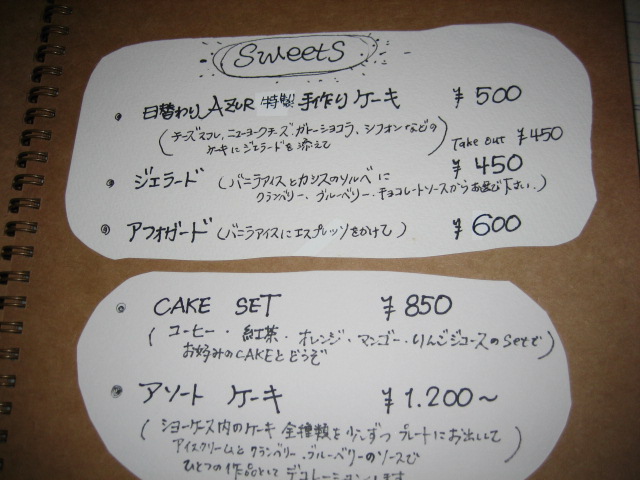 Sweets
・日替わり AZUR 特製 手作り ケーキ ¥500
(チーズスフレ、ニューヨークチーズ、ガトーショコラ、シフォンなどの
ケーキにジェラードを添えて) Take out ¥450
・ジェラード (バニラアイスとカシスのソルベに ¥450
クランベリー、ブルーベリー、チョコレートソースからお選び下さい.)
・アフォガード (バニラアイスにエスプレッソをかけて) ¥600
・CAKE SET ¥850
(コーヒー・紅茶・オレンジ・マンゴー・りんごジュースのsetで
お好みのCAKEとどうぞ)
・アソート ケーキ ¥1.200〜
(ショーケース内のケーキ 全種類を少しずつ プレートにお出しして
アイスクリームと クランベリー、ブルーベリーのソースで
ひとつの作品として デコレーションします)